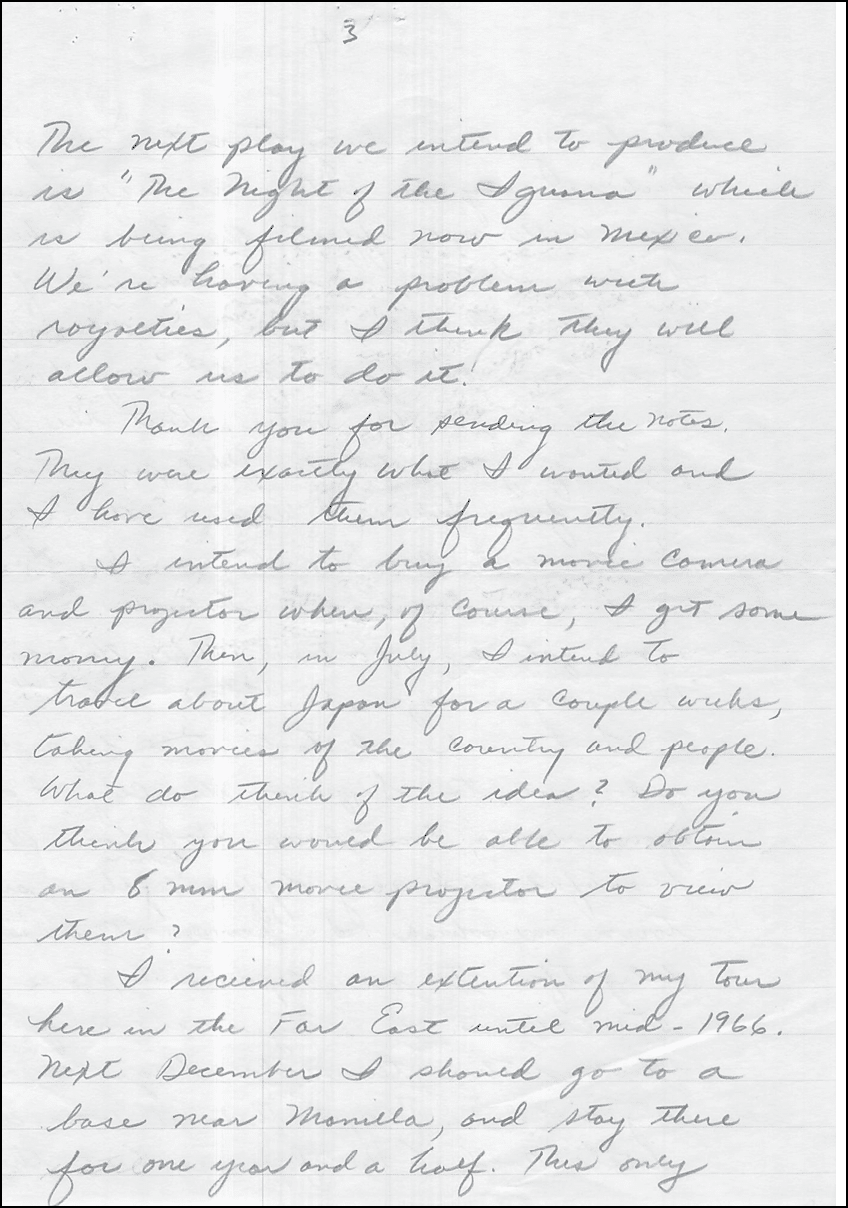 3
The next play we intend to produce
is "The Night of the Iguana" which
is being filmed now in Mexico.
We're having a problem with
royalties, but I think they will
allow us to do it!
Thank you for sending the notes.
They were exactly what I wanted and
I have used them frequently.
I intend to buy a movie camera
and projector when, of course, I get some
money. Then, in July, I intend to
travel about Japan for a couple weeks,
taking movies of the country and people.
What do think of the idea? Do you
think you would be able to obtain
an 8 mm movie projector to view
them?
I recieved an extention of my tour
here in the Far East until mid-1966.
Next December I should go to a
base near Manilla, and stay there
for one year and a half. This only